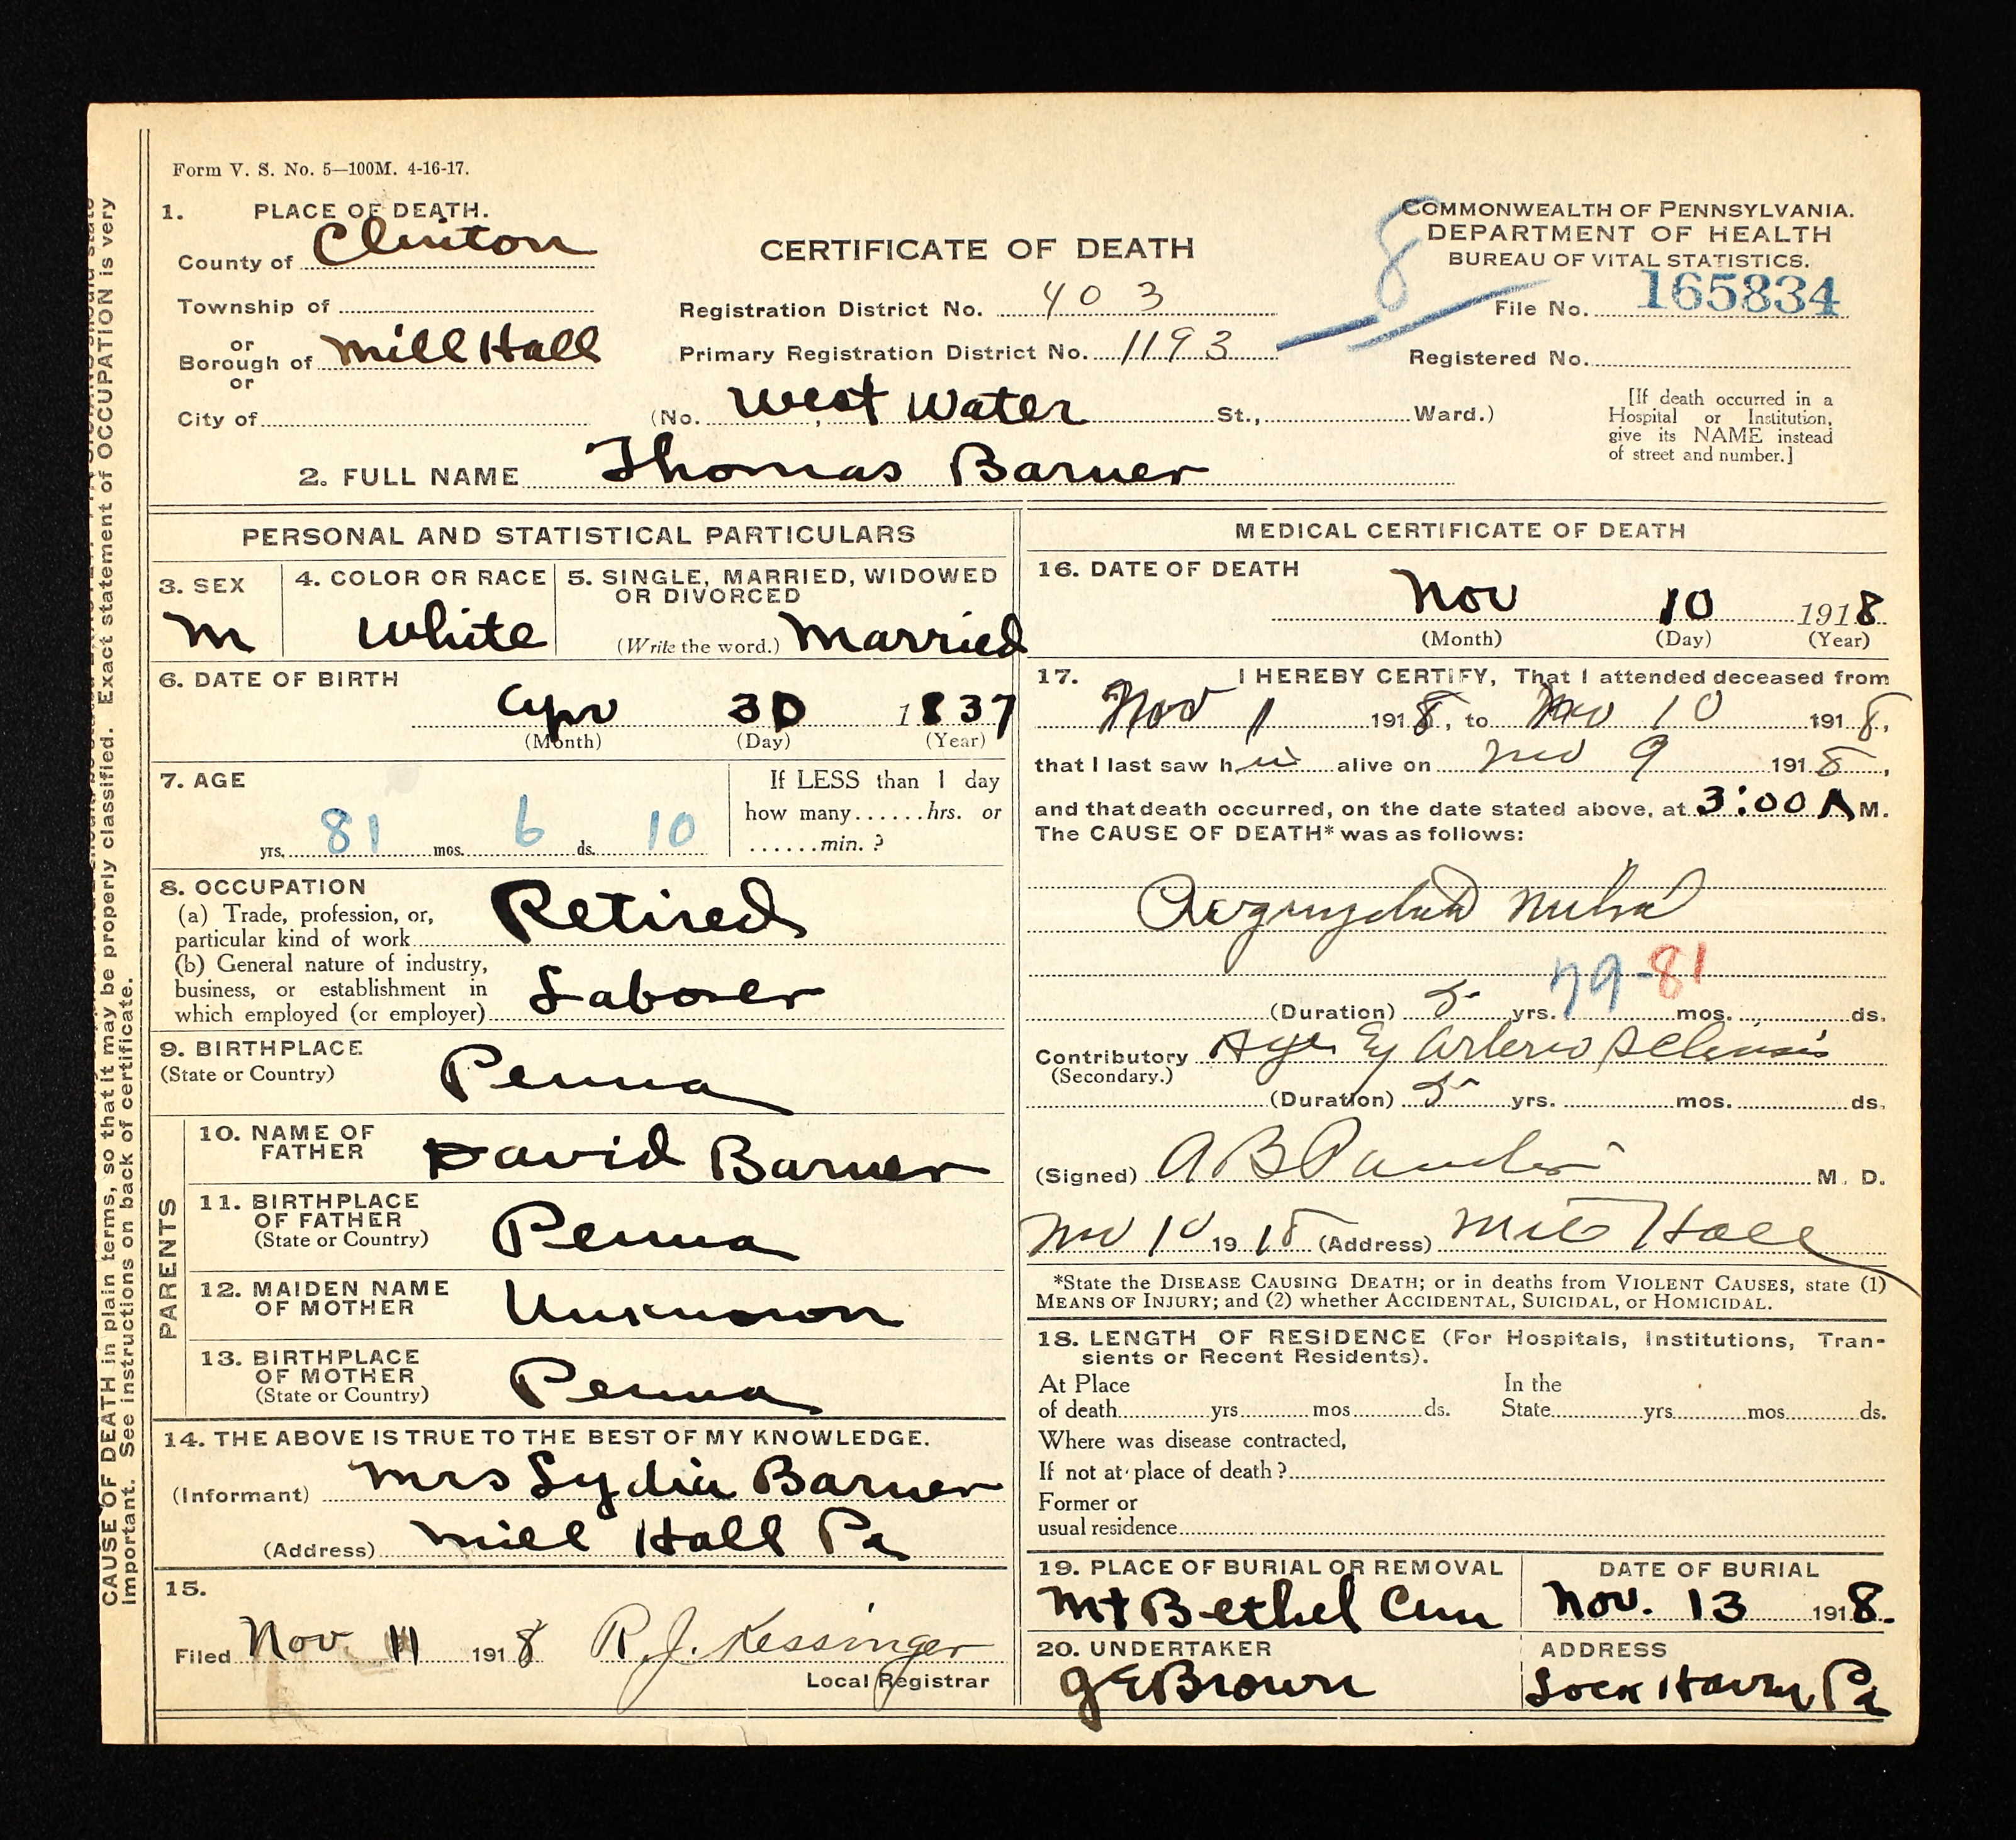 Form V. S. No. 5—100M. 4-16-17.
1. PLACE OF DEATH.
County of Clinton
Township of
or
Borough of Mill Hall
or
City of
CERTIFICATE OF DEATH
Registration District No. 403
Primary Registration District No. 1193
(No. West Water St., Ward.)
COMMONWEALTH OF PENNSYLVANIA.
DEPARTMENT OF HEALTH
BUREAU OF VITAL STATISTICS.
8
File No. 165834
Registered No.
[If death occurred in a
Hospital or Institution,
give its NAME instead
of street and number.]
2. FULL NAME Thomas Barner
PERSONAL AND STATISTICAL PARTICULARS
3. SEX
M
4. COLOR OR RACE
White
5. SINGLE, MARRIED, WIDOWED
OR DIVORCED
(Write the word.) Married
6. DATE OF BIRTH
Apr 30 1837
(Month) (Day) (Year)
7. AGE
81 yrs. 6 mos. 10 ds.
If LESS than 1 day
how many......hrs. or
......min. ?
8. OCCUPATION
(a) Trade, profession, or,
particular kind of work Retired
(b) General nature of industry,
business, or establishment in
which employed (or employer) Laborer
9. BIRTHPLACE
(State or Country) Penna
PARENTS
10. NAME OF
FATHER David Barner
11. BIRTHPLACE
OF FATHER
(State or Country) Penna
12. MAIDEN NAME
OF MOTHER Unknown
13. BIRTHPLACE
OF MOTHER
(State or Country) Penna
14. THE ABOVE IS TRUE TO THE BEST OF MY KNOWLEDGE.
(Informant) Mrs Lydia Barner
(Address) Mill Hall Pa
15.
Filed Nov. 11 1918 R. J. Kessinger
Local Registrar
MEDICAL CERTIFICATE OF DEATH
16. DATE OF DEATH
Nov 10 1918
(Month) (Day) (Year)
17. I HEREBY CERTIFY, That I attended deceased from
Nov 1 1918, to Nov 10 1918,
that I last saw him alive on Nov 9 1918,
and that death occurred, on the date stated above, at 3:00 A M.
The CAUSE OF DEATH* was as follows:
79-81
(Duration) 5 yrs. mos. ds.
Contributory Age & Arterio
(Secondary.)
(Duration) 5 yrs. mos. ds.
(Signed) A B M. D.
Nov 10 1918 (Address) Mill Hall
*State the DISEASE CAUSING DEATH; or in deaths from VIOLENT CAUSES, state (1)
MEANS OF INJURY; and (2) whether ACCIDENTAL, SUICIDAL, or HOMICIDAL.
18. LENGTH OF RESIDENCE (For Hospitals, Institutions, Tran-
sients or Recent Residents).
At Place In the
of death yrs mos ds. State yrs mos ds.
Where was disease contracted,
If not at place of death?
Former or
usual residence
19. PLACE OF BURIAL OR REMOVAL
Mt Bethel Cem
DATE OF BURIAL
Nov. 13 1918.
20. UNDERTAKER
G E Brown
ADDRESS
Lock Haven, Pa
CAUSE OF DEATH in plain terms, so that it may be properly classified. Exact statement of OCCUPATION is very
important. See instructions on back of certificate.